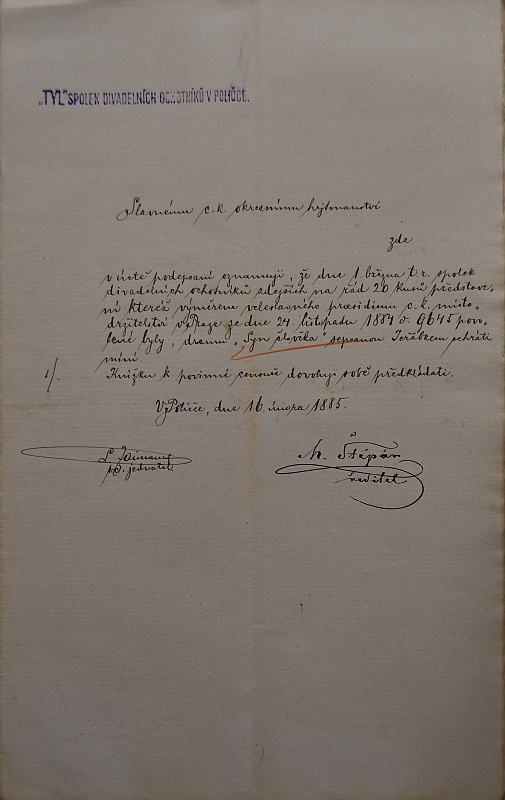 „TYL" SPOLEK DIVADELNÍCH OCHOTNÍKŮ V POLIČCE.
Slavnému c. k. okresnímu hejtmanství
zde
v úctě podepsaní oznamují, že dne 1. března t. r. spolek
divadelních ochotníků zdejších na řád 20 kusů představe-
ní kteréž výměrem veleslavného praesidium c. k. místo-
držitelství v Praze ze dne 24. listopadu 1884 č. 9645 povo-
lené byly, drama „Syn člověka" sepsanou Jeřábkem sehráti
míní.
1/.
Knížku k povinné censuře dovolují sobě předkládati.
V Poličce, dne 16. února 1885.
L.
jednatel.
M. Štěpán
ředitel